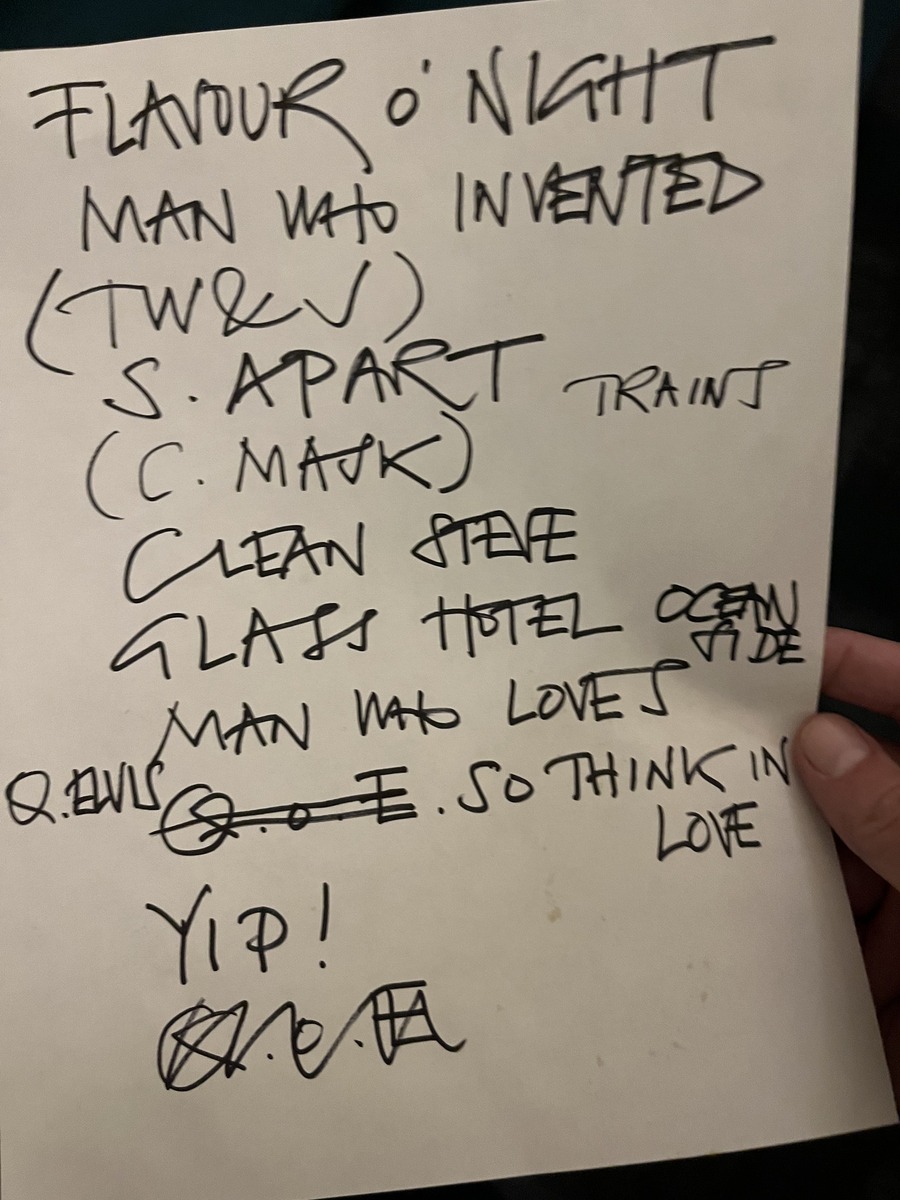 FLAVOUR O' NIGHT
MAN WHO INVENTED
(TW&V)
S. APART TRAINS
(C. MASK)
CLEAN STEVE
GLASS HOTEL OCEAN
SIDE
MAN WHO LOVES
Q.ELVIS Q.O.E. SO THINK IN
LOVE
YIP!